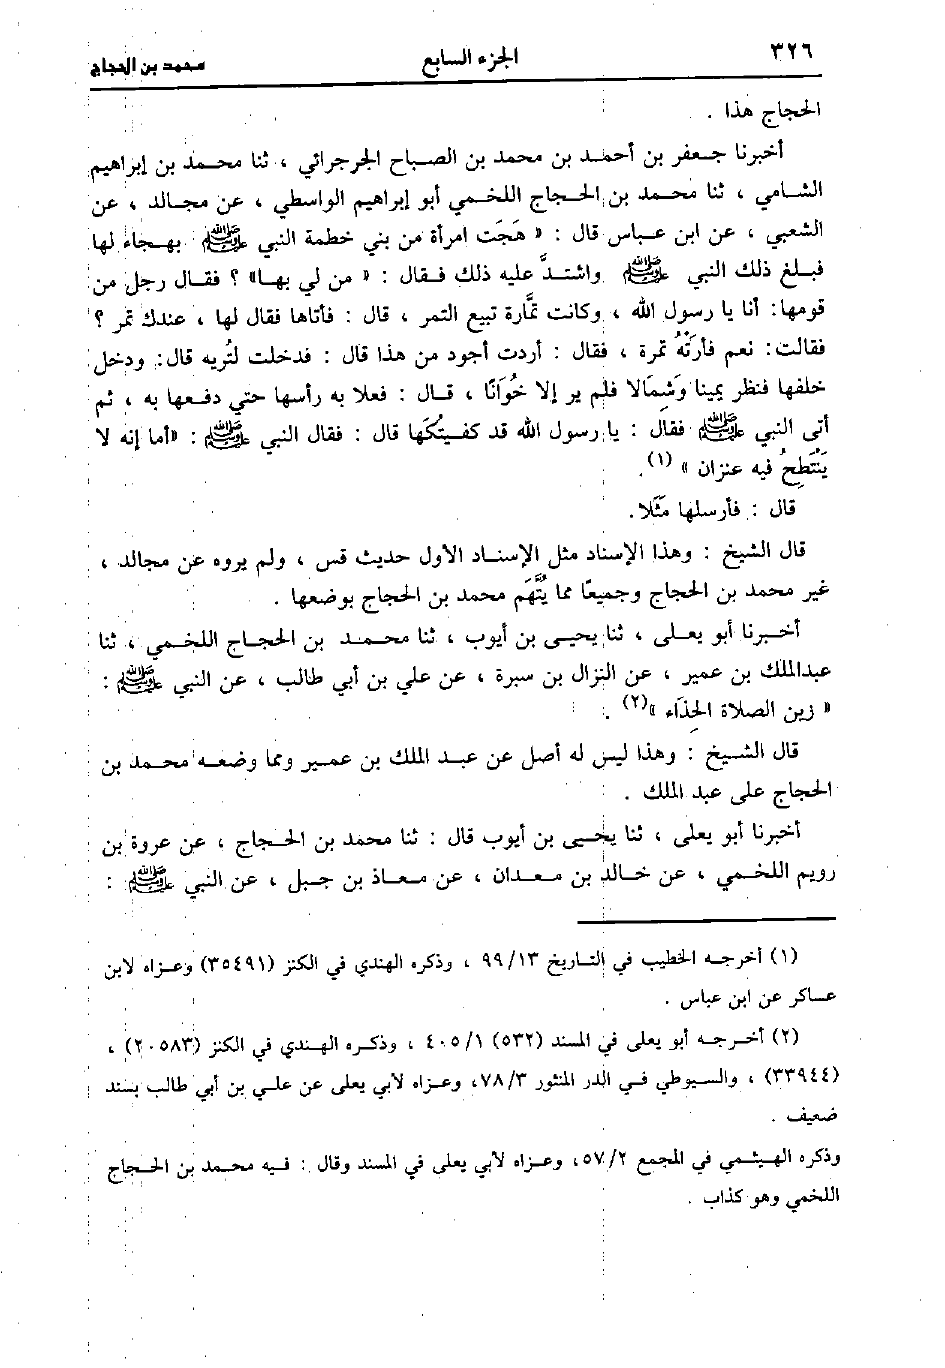 ٣٢٦ الجزء السابع محمد بن الحجاج
الحجاج هذا .
أخبرنا جعفر بن أحمد بن محمد بن الصباح الجرجرائي ، ثنا محمد بن إبراهيم
الشامي ، ثنا محمد بن الحجاج اللخمي أبو إبراهيم الواسطي ، عن مجالد ، عن
الشعبي ، عن ابن عباس قال : « هَجَت امرأة من بني خطمة النبي ﷺ بهجاء لها
فبلغ ذلك النبي ﷺ واشتدَّ عليه ذلك فقال : « من لي بها» ؟ فقال رجل من
قومها: أنا يا رسول الله ، وكانت تمَّارة تبيع التمر ، قال : فأتاها فقال لها ، عندك تمر ؟
فقالت: نعم فأرَتْهُ تمرة ، فقال : أردت أجود من هذا قال : فدخلت لتُريه قال: ودخل
خلفها فنظر يمينا وَشِمَالا فلم ير إلا خُوَانًا ، قال : فعلا به رأسها حتي دفعها به ، ثم
أتى النبي ﷺ فقال : يا رسول الله قد كفيتُكَها قال : فقال النبي ﷺ : «أما إنه لا
يَنْتَطِحُ فيه عنزان » (١).
قال : فأرسلها مَثَلا.
قال الشيخ : وهذا الإسناد مثل الإسناد الأول حديث قس ، ولم يروه عن مجالد ،
غير محمد بن الحجاج وجميعًا مما يُتَّهَم محمد بن الحجاج بوضعها .
أخبرنا أبو يعلى ، ثنا يحيى بن أيوب ، ثنا محمد بن الحجاج اللخمي ، ثنا
عبدالملك بن عمير ، عن النزال بن سبرة ، عن علي بن أبي طالب ، عن النبي ﷺ :
« زين الصلاة الحِذَاء »(٢) .
قال الشيخ : وهذا ليس له أصل عن عبد الملك بن عمير ومما وضعه محمد بن
الحجاج على عبد الملك .
أخبرنا أبو يعلى ، ثنا يحيى بن أيوب قال : ثنا محمد بن الحجاج ، عن عروة بن
رويم اللخمي ، عن خالد بن معدان ، عن معاذ بن جبل ، عن النبي ﷺ :
(١) أخرجه الخطيب في التاريخ ٩٩/١٣ ، وذكره الهندي في الكنز (٣٥٤٩١) وعزاه لابن
عساكر عن ابن عباس .
(٢) أخرجه أبو يعلى في المسند (٥٣٢) ٤٠٥/١ ، وذكره الهندي في الكنز (٢٠٥٨٣) ،
(٣٣٩٤٤) ، والسيوطي في الدر المنثور ٧٨/٣، وعزاه لابي يعلى عن علي بن أبي طالب بسند
ضعيف .
وذكره الهيثمي في المجمع ٥٧/٢، وعزاه لأبي يعلى في المسند وقال : فيه محمد بن الحجاج
اللخمي وهو كذاب .